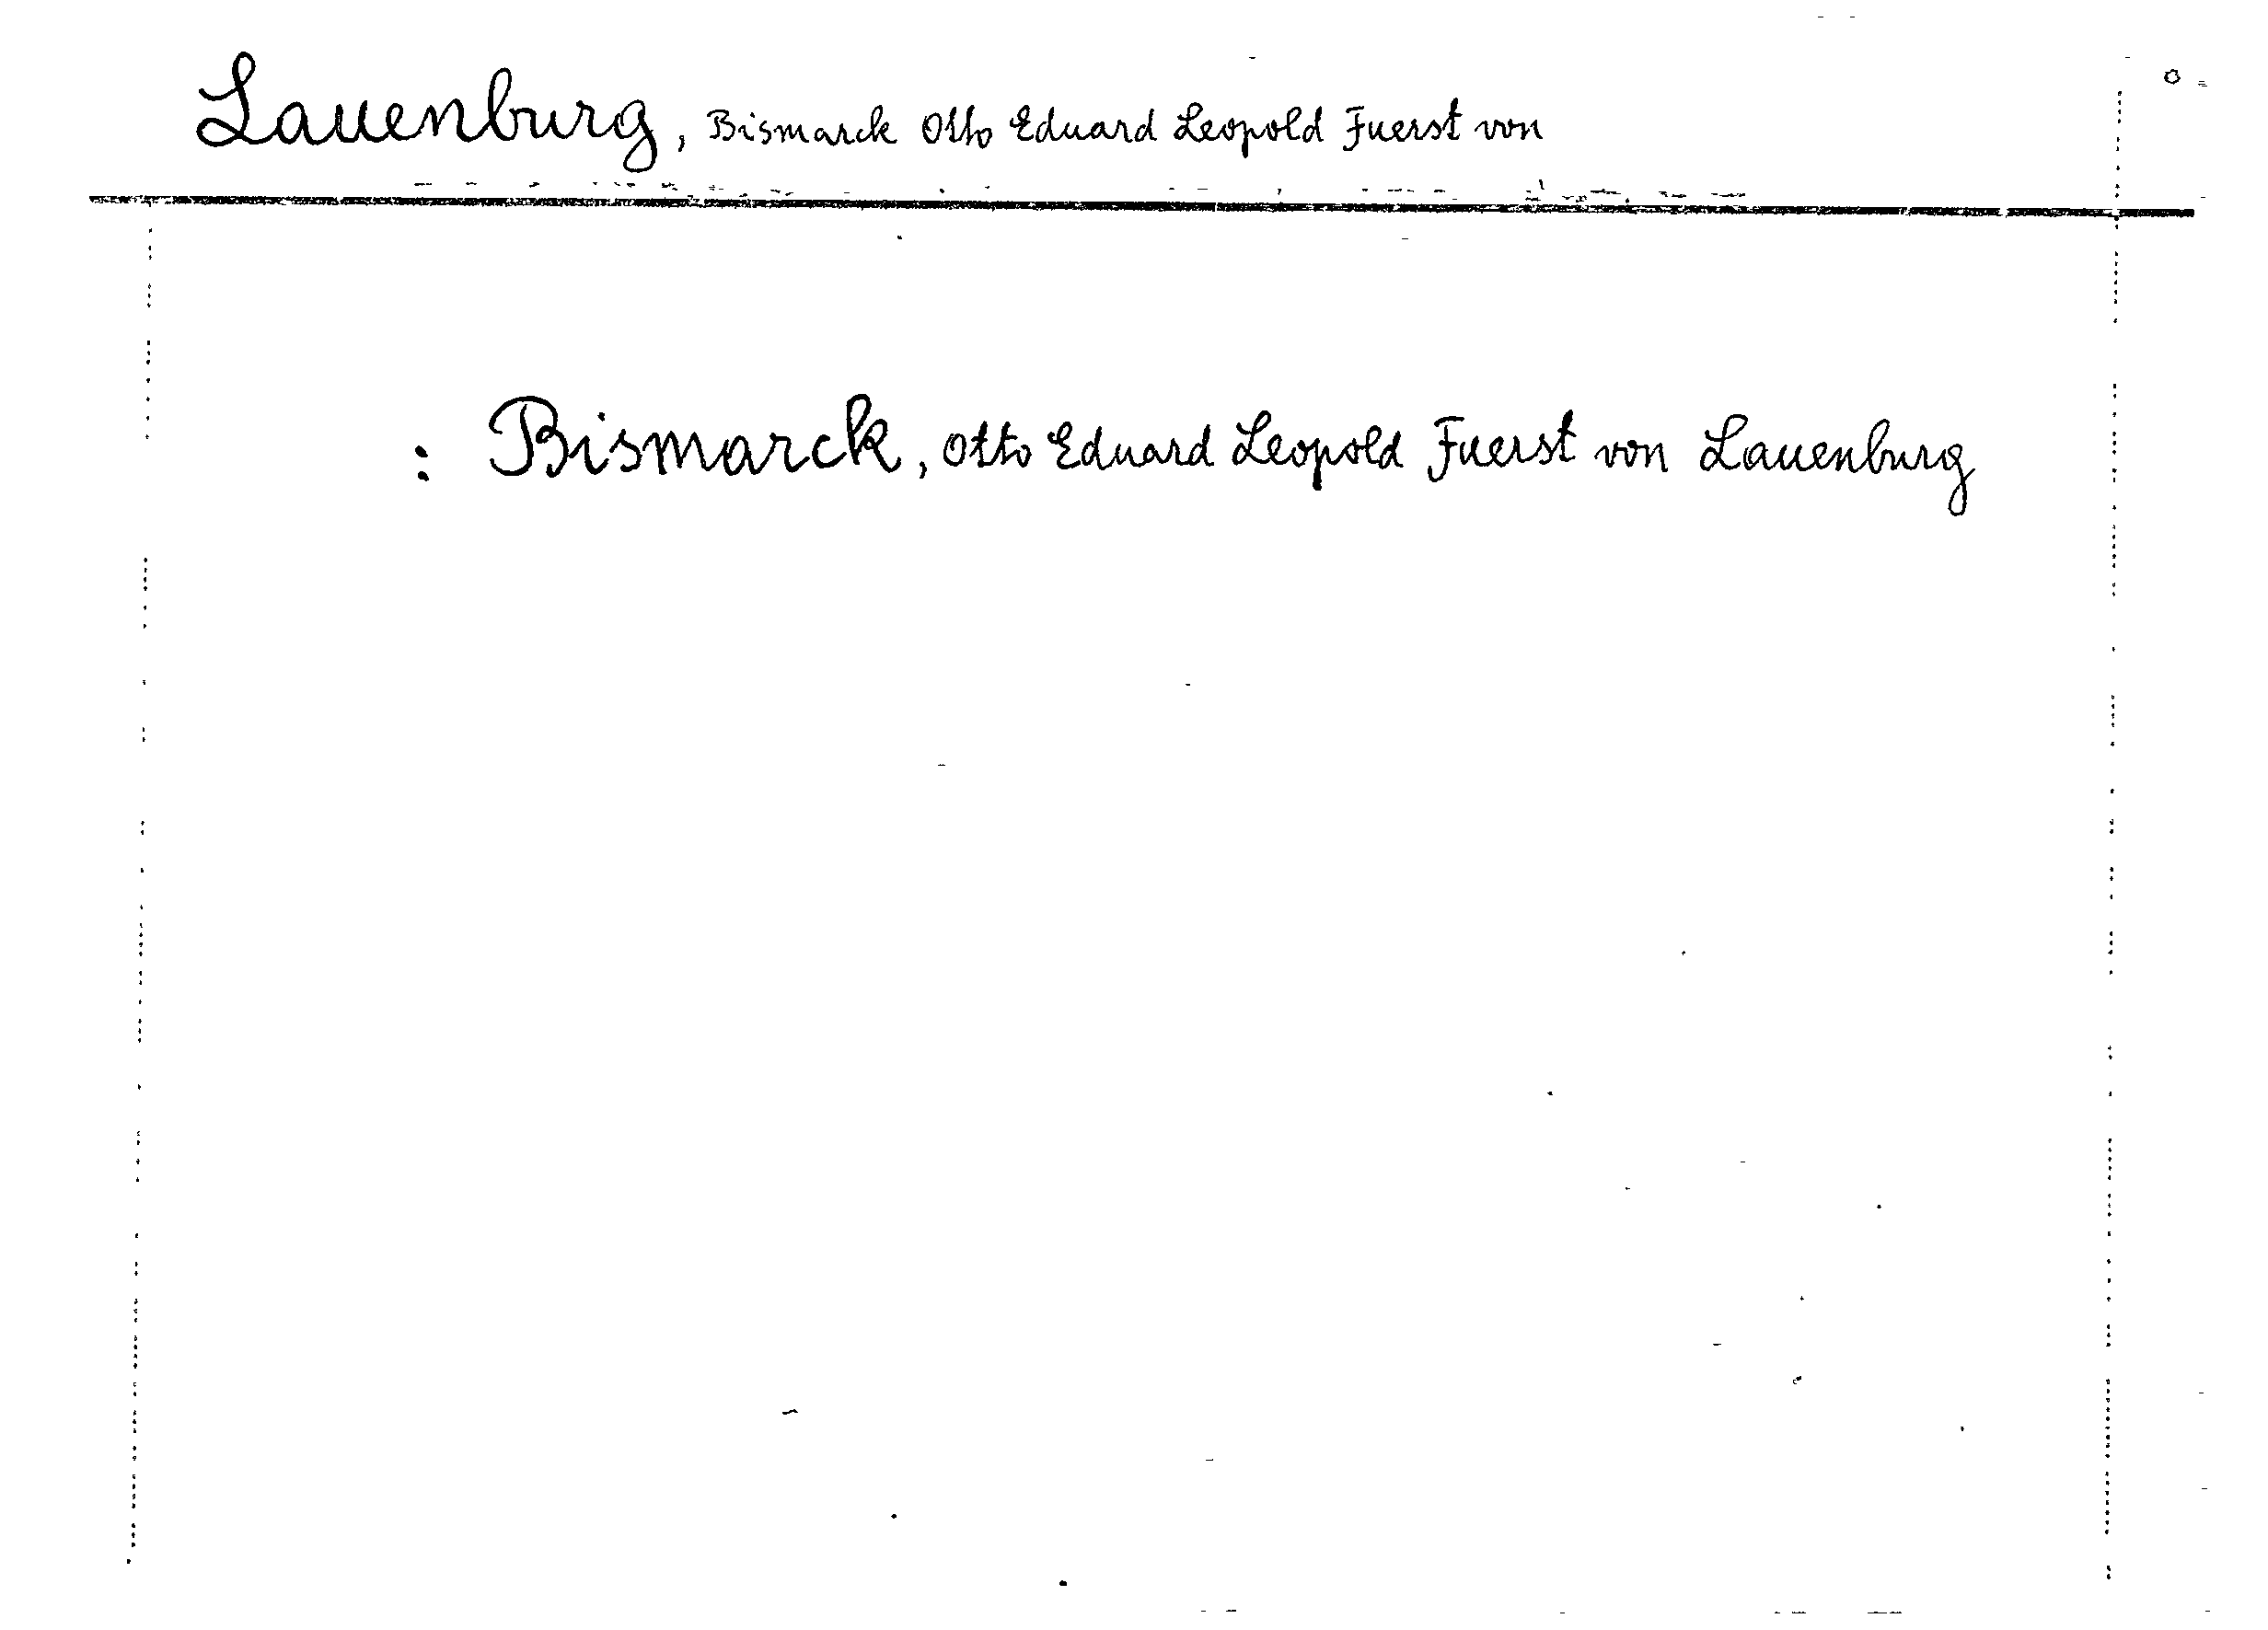 Lauenburg, Bismarck Otto Eduard Leopold Fuerst von
: Bismarck, Otto Eduard Leopold Fuerst von Lauenburg